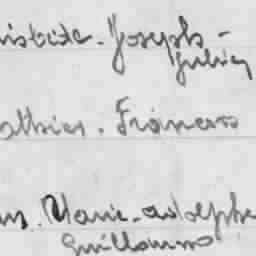 Joseph-
Julien
Mathias. François
Marie-Adolphe
Guillaume